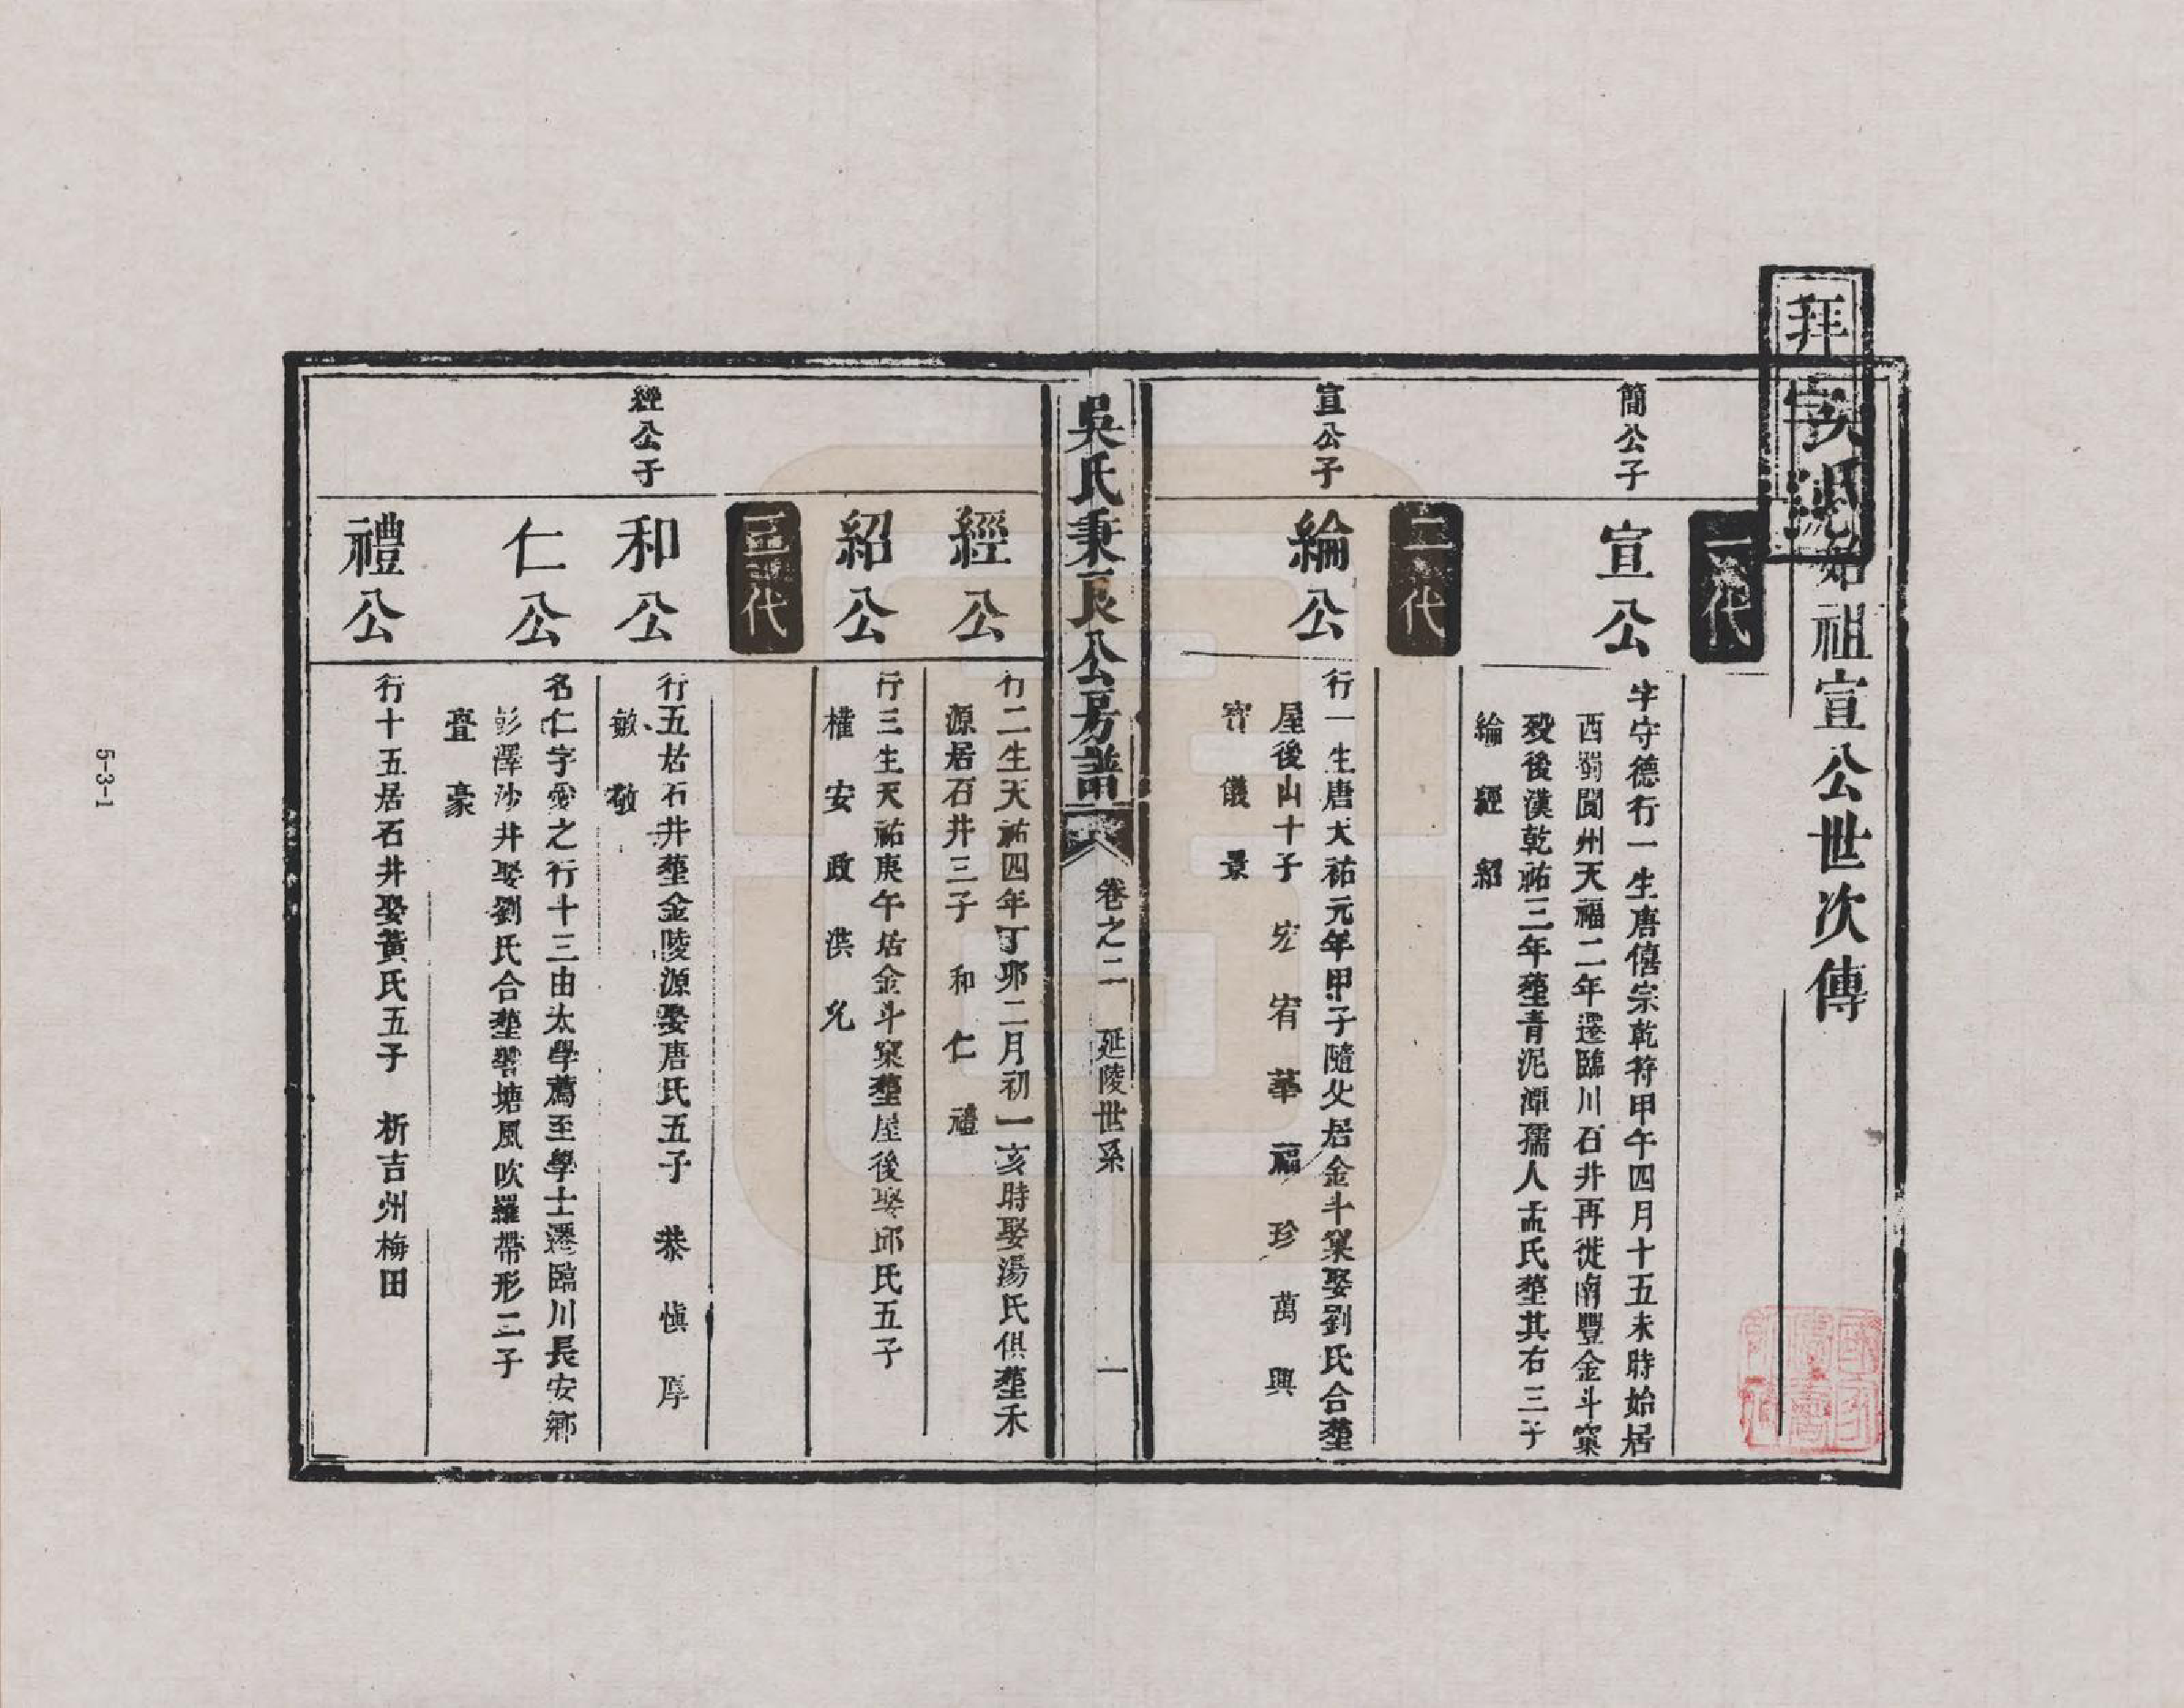 吳氏始祖宣公世次傳
拜字號
一代
簡公子
宣公
字守德行一生唐僖宗乾符甲午四月十五未時始居
西蜀閬州天福二年遷臨川石井再徙南豐金斗窠
歿後漢乾祐三年塟青泥潭孺人孟氏塟其右三子
綸 經 紹
二代
宣公子
綸公
行一生唐天祐元年甲子隨父居金斗窠娶劉氏合塟
屋後山十子 宏 宥 華 福 珍 萬 興
寶 儀 景
吳氏秉良公房譜
卷之二 延陵世系 一
經公
行二生天祐四年丁卯二月初一亥時娶湯氏俱塟禾
源居石井三子 和 仁 禮
紹公
行三生天祐庚午居金斗窠塟屋後娶邱氏五子
權 安 政 洪 允
三代
經公子
和公
行五居石井塟金陵源娶唐氏五子 恭 慎 厚
敏 敬
仁公
名仁字愛之行十三由太學薦至學士遷臨川長安鄉
彭澤沙井娶劉氏合塟礬塘風吹羅帶形二子
亶 豪
禮公
行十五居石井娶黃氏五子 析吉州梅田
5-3-1